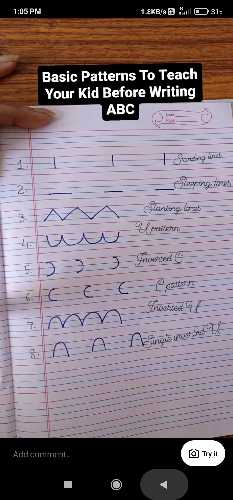 1:05 PM 1.8KB/s 31%
Basic Patterns To Teach
Your Kid Before Writing
ABC
1. Standing lines
2. Sleeping lines
3. Slanting lines
4. U pattern
5. Inverced C
6. C pattern
7. Inverced U
8.
Add comment...
Try it